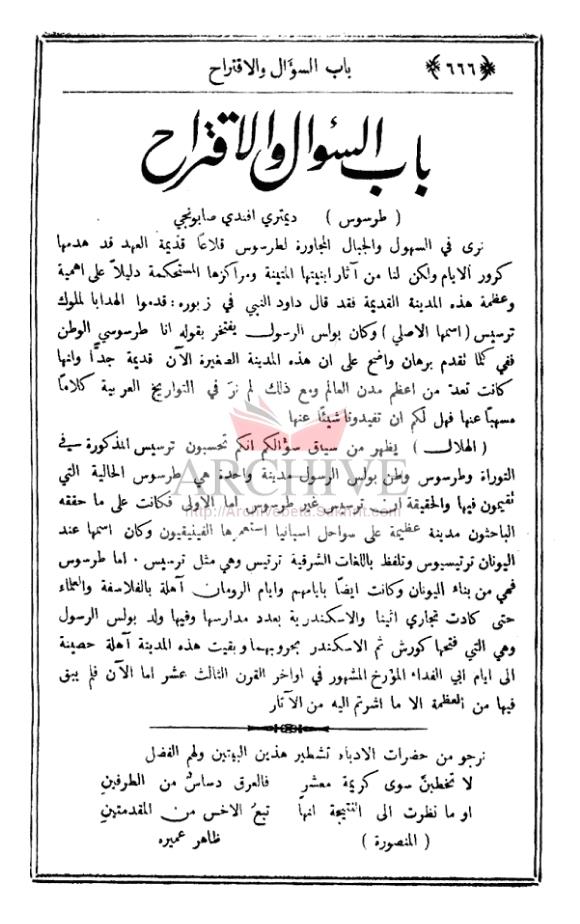 باب السؤال والاقتراح ﴿٦٦٦﴾
باب السؤال والاقتراح
( طرسوس ) ديمتري افندي صابونجي
نرى في السهول والجبال المجاورة لطرسوس قلاعًا قديمة العهد قد هدمها
كرور الايام ولكن لنا من آثار ابنيتها المتينة ومراكزها المستحكمة دليلاً على اهمية
وعظمة هذه المدينة القديمة فقد قال داود النبي في زبوره : قدموا الهدايا لملوك
ترسيس ( اسمها الاصلي ) وكان بولس الرسول يفتخر بقوله انا طرسوسي الوطن
ففي كلما تقدم برهان واضح على ان هذه المدينة الصغيرة الآن قديمة جدًّا وانها
كانت تعدّ من اعظم مدن العالم ومع ذلك لم نرَ في التواريخ العربية كلامًا
مسهبًا عنها فهل لكم ان تفيدونا شيئًا عنها
( الهلال ) يظهر من سياق سؤالكم انكم تحسبون ترسيس المذكورة في
التوراة وطرسوس وطن بولس الرسول مدينة واحدة هي طرسوس الحالية التي
تقيمون فيها والحقيقة ان ترسيس غير طرسوس اما الاولى فكانت على ما حققه
الباحثون مدينة عظيمة على سواحل اسبانيا استعمرها الفينيقيون وكان اسمها عند
اليونان ترتيسيوس وتلفظ باللغات الشرقية ترتيس وهي مثل ترسيس . اما طرسوس
فهي من بناء اليونان وكانت ايضًا بايامهم وايام الرومان آهلة بالفلاسفة والعلماء
حتى كادت تجاري اثينا والاسكندرية بعدد مدارسها وفيها ولد بولس الرسول
وهي التي فتحها كورش ثم الاسكندر بحروبهما وبقيت هذه المدينة آهلة حصينة
الى ايام ابي الفداء المؤرخ المشهور في اواخر القرن الثالث عشر اما الآن فلم يبق
فيها من العظمة الا ما اشرتم اليه من الآثار
نرجو من حضرات الادباء تشطير هذين البيتين ولهم الفضل
لا تخطبنّ سوى كريمة معشرٍ فالعرق دساسٌ من الطرفينِ
او ما نظرت الى النتيجة انها تبعُ الاخس من المقدمتينِ
( المنصورة ) ظاهر عميره
ARCHIVE
http://Archivebeta.Sakhrit.com